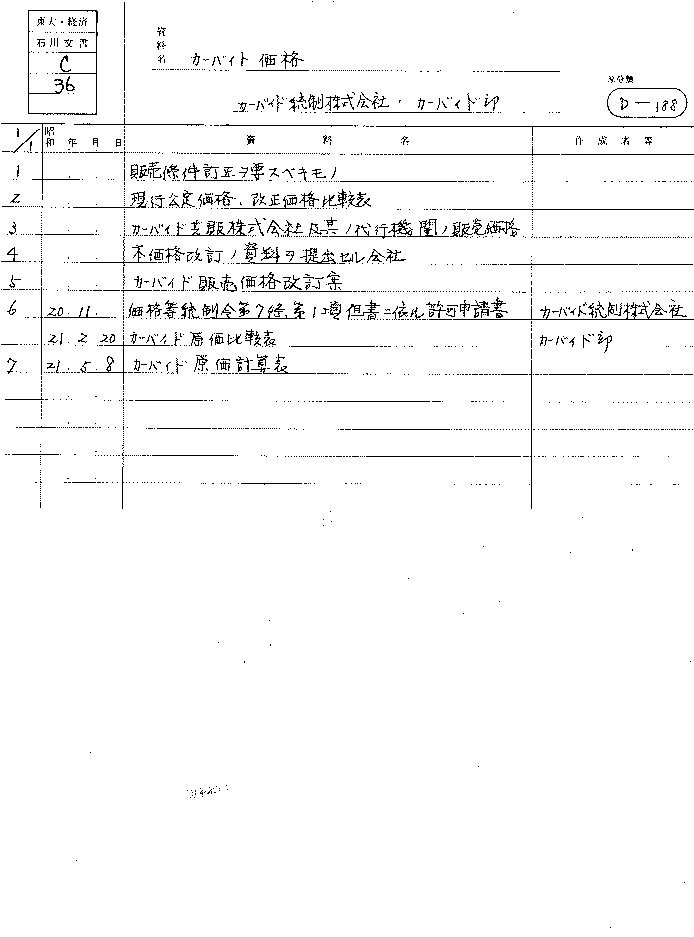 東大・経済
石川文書
C
36
資料名 カーバイト 価格
カーバイド統制株式会社・カーバイド卯
原分類
D-188
1/1 昭和 年 月 日 資料名 作成者等
1 販売條件訂正ヲ要スベキモノ
2 現行公定価格、改正価格比較表
3 カーバイド共販株式会社及其ノ代行機関ノ販売価格
4 本価格改訂ノ資料ヲ提出セル会社
5 カーバイド販売価格改訂案
6 20. 11. 価格等統制令第7條第1項但書ニ依ル許可申請書 カーバイド統制株式会社
21. 2. 20 カーバイド原価比較表 カーバイド卯
7 21. 5. 8 カーバイド 原価計算表